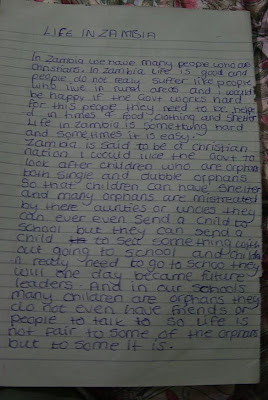 LIFE IN ZAMBIA
In Zambia we have many people who are
christians. In zambia life is good and
people do not realy suffer like people
who live in rural areas and I would
be happy if the Govt works hard
for this people they need to be help
d in times of food, clothing and shelter
Life in zambia is something hard
and sometimes it is easy.
Zambia is said to be a christian
nation I would like the Govt to
look after children who are orphan
both single and dubble orphans
so that children can have shelter
and many orphans are mistreated
by there aunties or uncles they
can ever even send a child to
school but they can send a
child to to sell something with
out going to school and childre
n realy need to go to schoo they
will one day become future
leaders. And in our schools
many children are orphans they
do not even have friends or
people to talk to so life is
not fair to some of the orphans
but to some it is.